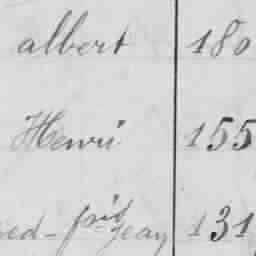 albert 180
Henri 155
ed - frid Jean 131